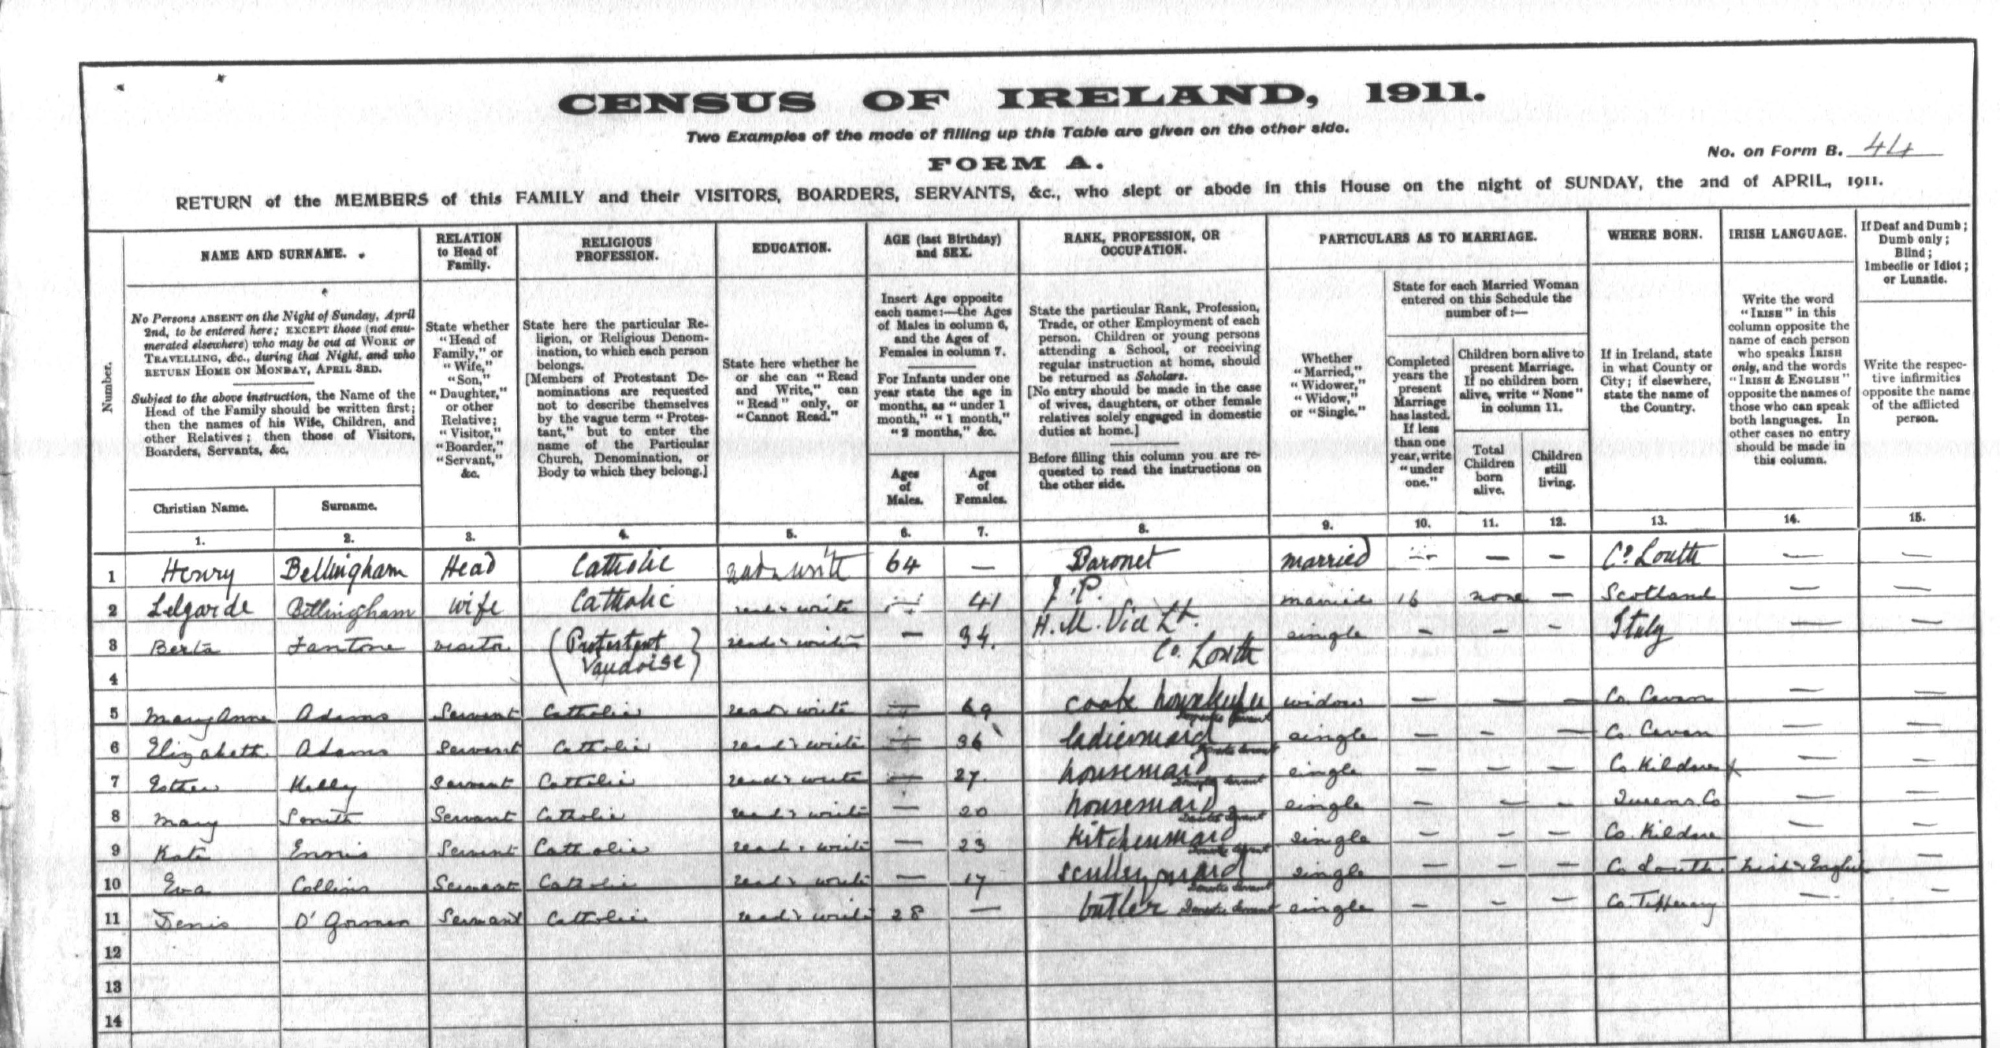 CENSUS OF IRELAND, 1911.
Two Examples of the mode of filling up this Table are given on the other side.
FORM A.
No. on Form B. 44
RETURN of the MEMBERS of this FAMILY and their VISITORS, BOARDERS, SERVANTS, &c., who slept or abode in this House on the night of SUNDAY, the 2nd of APRIL, 1911.
Number.
NAME AND SURNAME.
No Persons ABSENT on the Night of Sunday, April
2nd, to be entered here; EXCEPT those (not enu-
merated elsewhere) who may be out at WORK or
TRAVELLING, &c., during that Night, and who
RETURN HOME ON MONDAY, APRIL 3RD.
Subject to the above instruction, the Name of the
Head of the Family should be written first;
then the names of his Wife, Children, and
other Relatives; then those of Visitors,
Boarders, Servants, &c.
Christian Name.
Surname.
1.
2.
RELATION
to Head of
Family.
State whether
"Head of
Family," or
"Wife,"
"Son,"
"Daughter,"
or other
Relative;
"Visitor,"
"Boarder,"
"Servant,"
&c.
3.
RELIGIOUS
PROFESSION.
State here the particular Re-
ligion, or Religious Denom-
ination, to which each person
belongs.
[Members of Protestant De-
nominations are requested
not to describe themselves
by the vague term "Protes-
tant," but to enter the
name of the Particular
Church, Denomination, or
Body to which they belong.]
4.
EDUCATION.
State here whether he
or she can "Read
and Write," can
"Read" only, or
"Cannot Read."
5.
AGE (last Birthday)
and SEX.
Insert Age opposite
each name:—the Ages
of Males in column 6,
and the Ages of
Females in column 7.
For Infants under one
year state the age in
months, as "under 1
month," "1 month,"
"2 months," &c.
Ages
of
Males.
Ages
of
Females.
6.
7.
RANK, PROFESSION, OR
OCCUPATION.
State the particular Rank, Profession,
Trade, or other Employment of each
person. Children or young persons
attending a School, or receiving
regular instruction at home, should
be returned as Scholars.
[No entry should be made in the case
of wives, daughters, or other female
relatives solely engaged in domestic
duties at home.]
Before filling this column you are re-
quested to read the instructions on
the other side.
8.
PARTICULARS AS TO MARRIAGE.
Whether
"Married,"
"Widower,"
"Widow,"
or "Single."
9.
State for each Married Woman
entered on this Schedule the
number of:—
Completed
years the
present
Marriage
has lasted.
If less
than one
year, write
"under
one."
10.
Children born alive to
present Marriage.
If no children born
alive, write "None"
in column 11.
Total
Children
born
alive.
11.
Children
still
living.
12.
WHERE BORN.
If in Ireland, state
in what County or
City; if elsewhere,
state the name of
the Country.
13.
IRISH LANGUAGE.
Write the word
"IRISH" in this
column opposite the
name of each person
who speaks IRISH
only, and the words
"IRISH & ENGLISH"
opposite the names of
those who can speak
both languages. In
other cases no entry
should be made in
this column.
14.
If Deaf and Dumb;
Dumb only;
Blind;
Imbecile or Idiot;
or Lunatic.
Write the respec-
tive infirmities
opposite the name
of the afflicted
person.
15.
1 Henry Bellingham Head Catholic read & write 64 — Baronet married — — Co. Louth — —
2 Lelgarde Bellingham wife Catholic read & write 41 J.P. married 16 none — Scotland — —
3 Berta Fantone visitor (Protestant read & write — 34. H.M. Lt. single — — — Italy — —
Vaudoise) Co. Louth
4
5 Mary Anne Adams Servant Catholic read & write — 69 cook housekeeper widow — — — Co. Cavan — —
6 Elizabeth Adams Servant Catholic read & write — 36 ladiesmaid single — — — Co. Cavan — —
7 Esther Kelly Servant Catholic read & write — 27. housemaid single — — — Co Kildare — —
8 Mary Smith Servant Catholic read & write — 20 housemaid single — — — Queens Co — —
9 Kate Ennis Servant Catholic read & write — 23 kitchenmaid single — — — Co. Kildare — —
10 Eva Collins Servant Catholic read & write — 17 scullerymaid single — — — Co Louth Irish & English —
11 Denis O'Gorman Servant Catholic read & write 28 — butler Domestic Servant single — — — Co. Tipperary — —
12
13
14